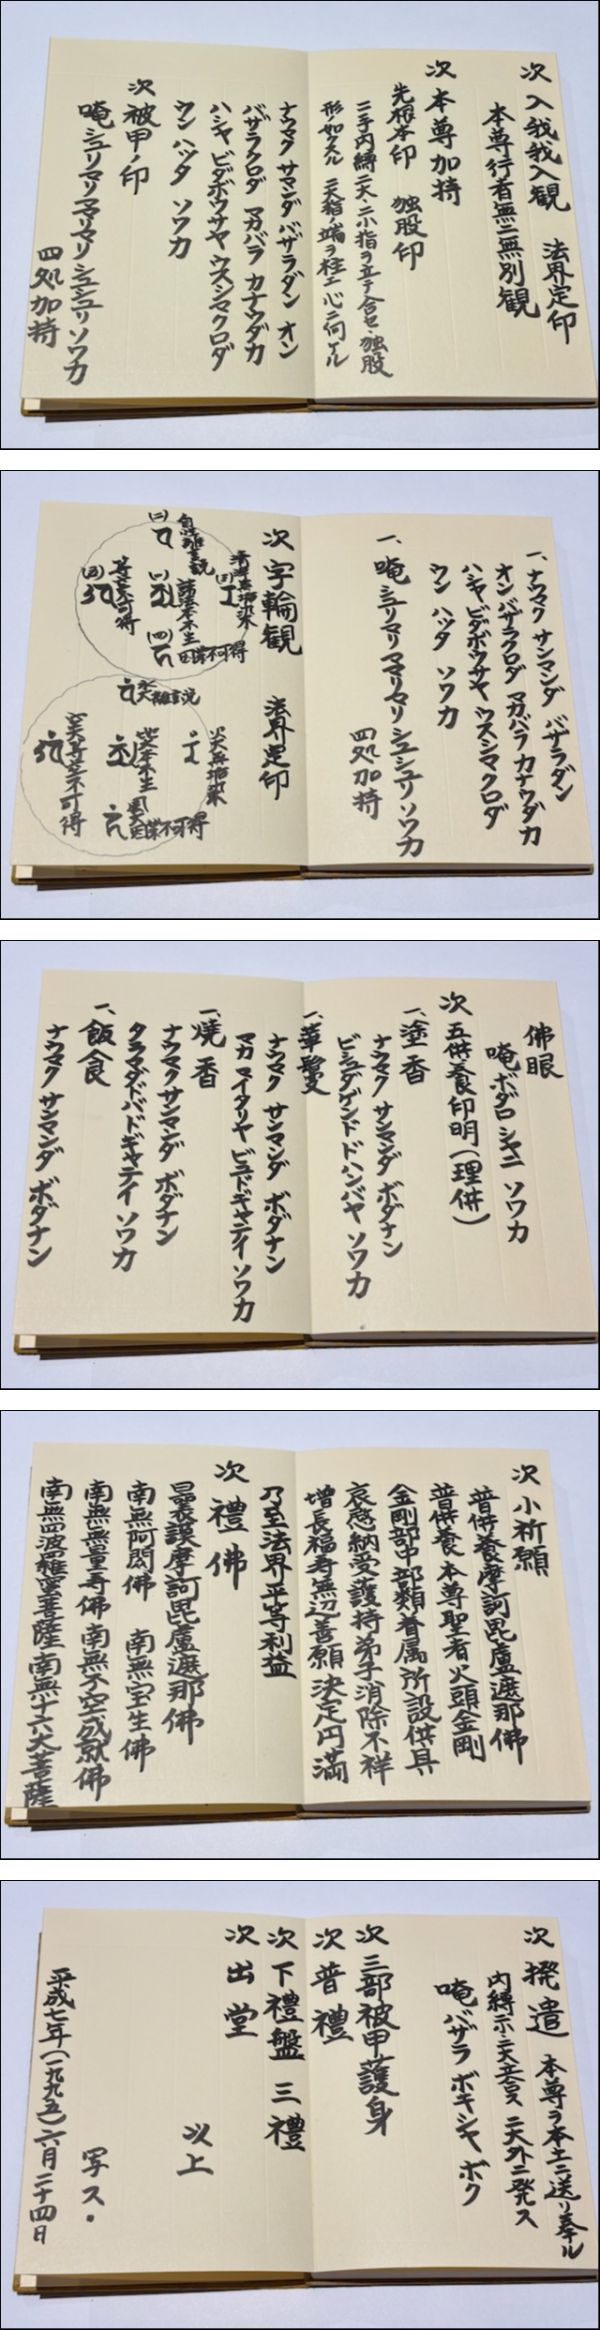 次 入我我入観 法界定印
本尊行者無二無別観
次 本尊加持
先根本印 独股印
二手内縛二大・二小指ヲ立テ合セ・独股
形ノ如クスル 二大指ノ端ヲ柱エ心ニ向ケル
ナウマク サマンダ バザラダン オン
バザラクロダ マカバラ カナウダカ
ハシヤ ビダボウサヤ ウスシマクロダ
ウン ハッタ ソワカ
次 被甲ノ印
唵 シュリマリ ママリマリ シュシュリ ソワカ
四処加持
一、ナウマク サンマンダ バザラダン
オン バザラクロダ マカバラ カナウダカ
ハシヤ ビダボウサヤ ウスシマクロダ
ウン ハッタ ソワカ
一、唵 シュリマリ ママリマリ シュシュリ ソワカ
四処加持
次 字輪観 法界定印
(二) 自性離言説
(三) 清浄無垢染
(一) 諸法本不生
(五) 等空不可得
(四) 因業不可得
水大離言説
火大無垢染
地大本不生
空大等空不可得
風大因業不可得
佛眼
唵 ボダロシャニ ソワカ
次 五供養印明(理供)
一、塗香
ナウマク サンマンダ ボダナン
ビシュダゲンドドハンバヤ ソワカ
一、華鬘
ナウマク サンマンダ ボダナン
マカ マイタリヤ ビュドギャテイ ソワカ
一、焼香
ナウマク サンマンダ ボダナン
タラマダドバドギャテイ ソワカ
一、飯食
ナウマク サンマンダ ボダナン
次 小祈願
普供養摩訶毘盧遮那佛
普供養 本尊聖者火頭金剛
金剛部中部類眷属所設供具
哀愍納受護持弟子消除不祥
増長福寿無辺善願 決定円満
乃至法界平等利益
次 禮佛
曩莫謨摩訶毘盧遮那佛
南無阿閦佛 南無宝生佛
南無無量寿佛 南無不空成就佛
南無四波羅蜜菩薩 南無十六大菩薩
次 撥遣 本尊ヲ本土ニ送リ奉ル
内縛 二大外ニ発ス
唵 バザラ ボキシャ ボク
次 三部被甲護身
次 普禮
次 下禮盤 三禮
次 出堂
以上
写ス・
平成七年(一九九五)六月二十四日